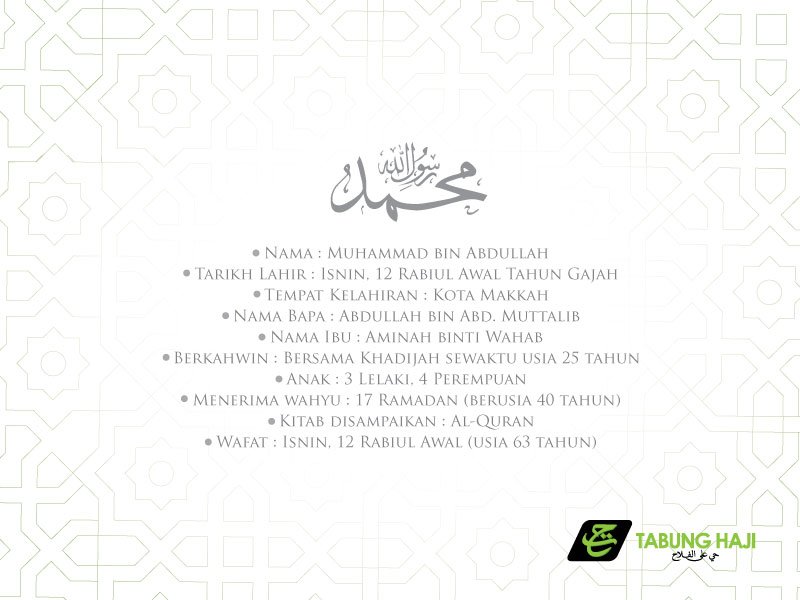 محمد رسول الله
• Nama : Muhammad bin Abdullah
• Tarikh Lahir : Isnin, 12 Rabiul Awal Tahun Gajah
• Tempat Kelahiran : Kota Makkah
• Nama Bapa : Abdullah bin Abd. Muttalib
• Nama Ibu : Aminah binti Wahab
• Berkahwin : Bersama Khadijah sewaktu usia 25 tahun
• Anak : 3 Lelaki, 4 Perempuan
• Menerima wahyu : 17 Ramadan (berusia 40 tahun)
• Kitab disampaikan : Al-Quran
• Wafat : Isnin, 12 Rabiul Awal (usia 63 tahun)
TABUNG HAJI
حي على الفلاح